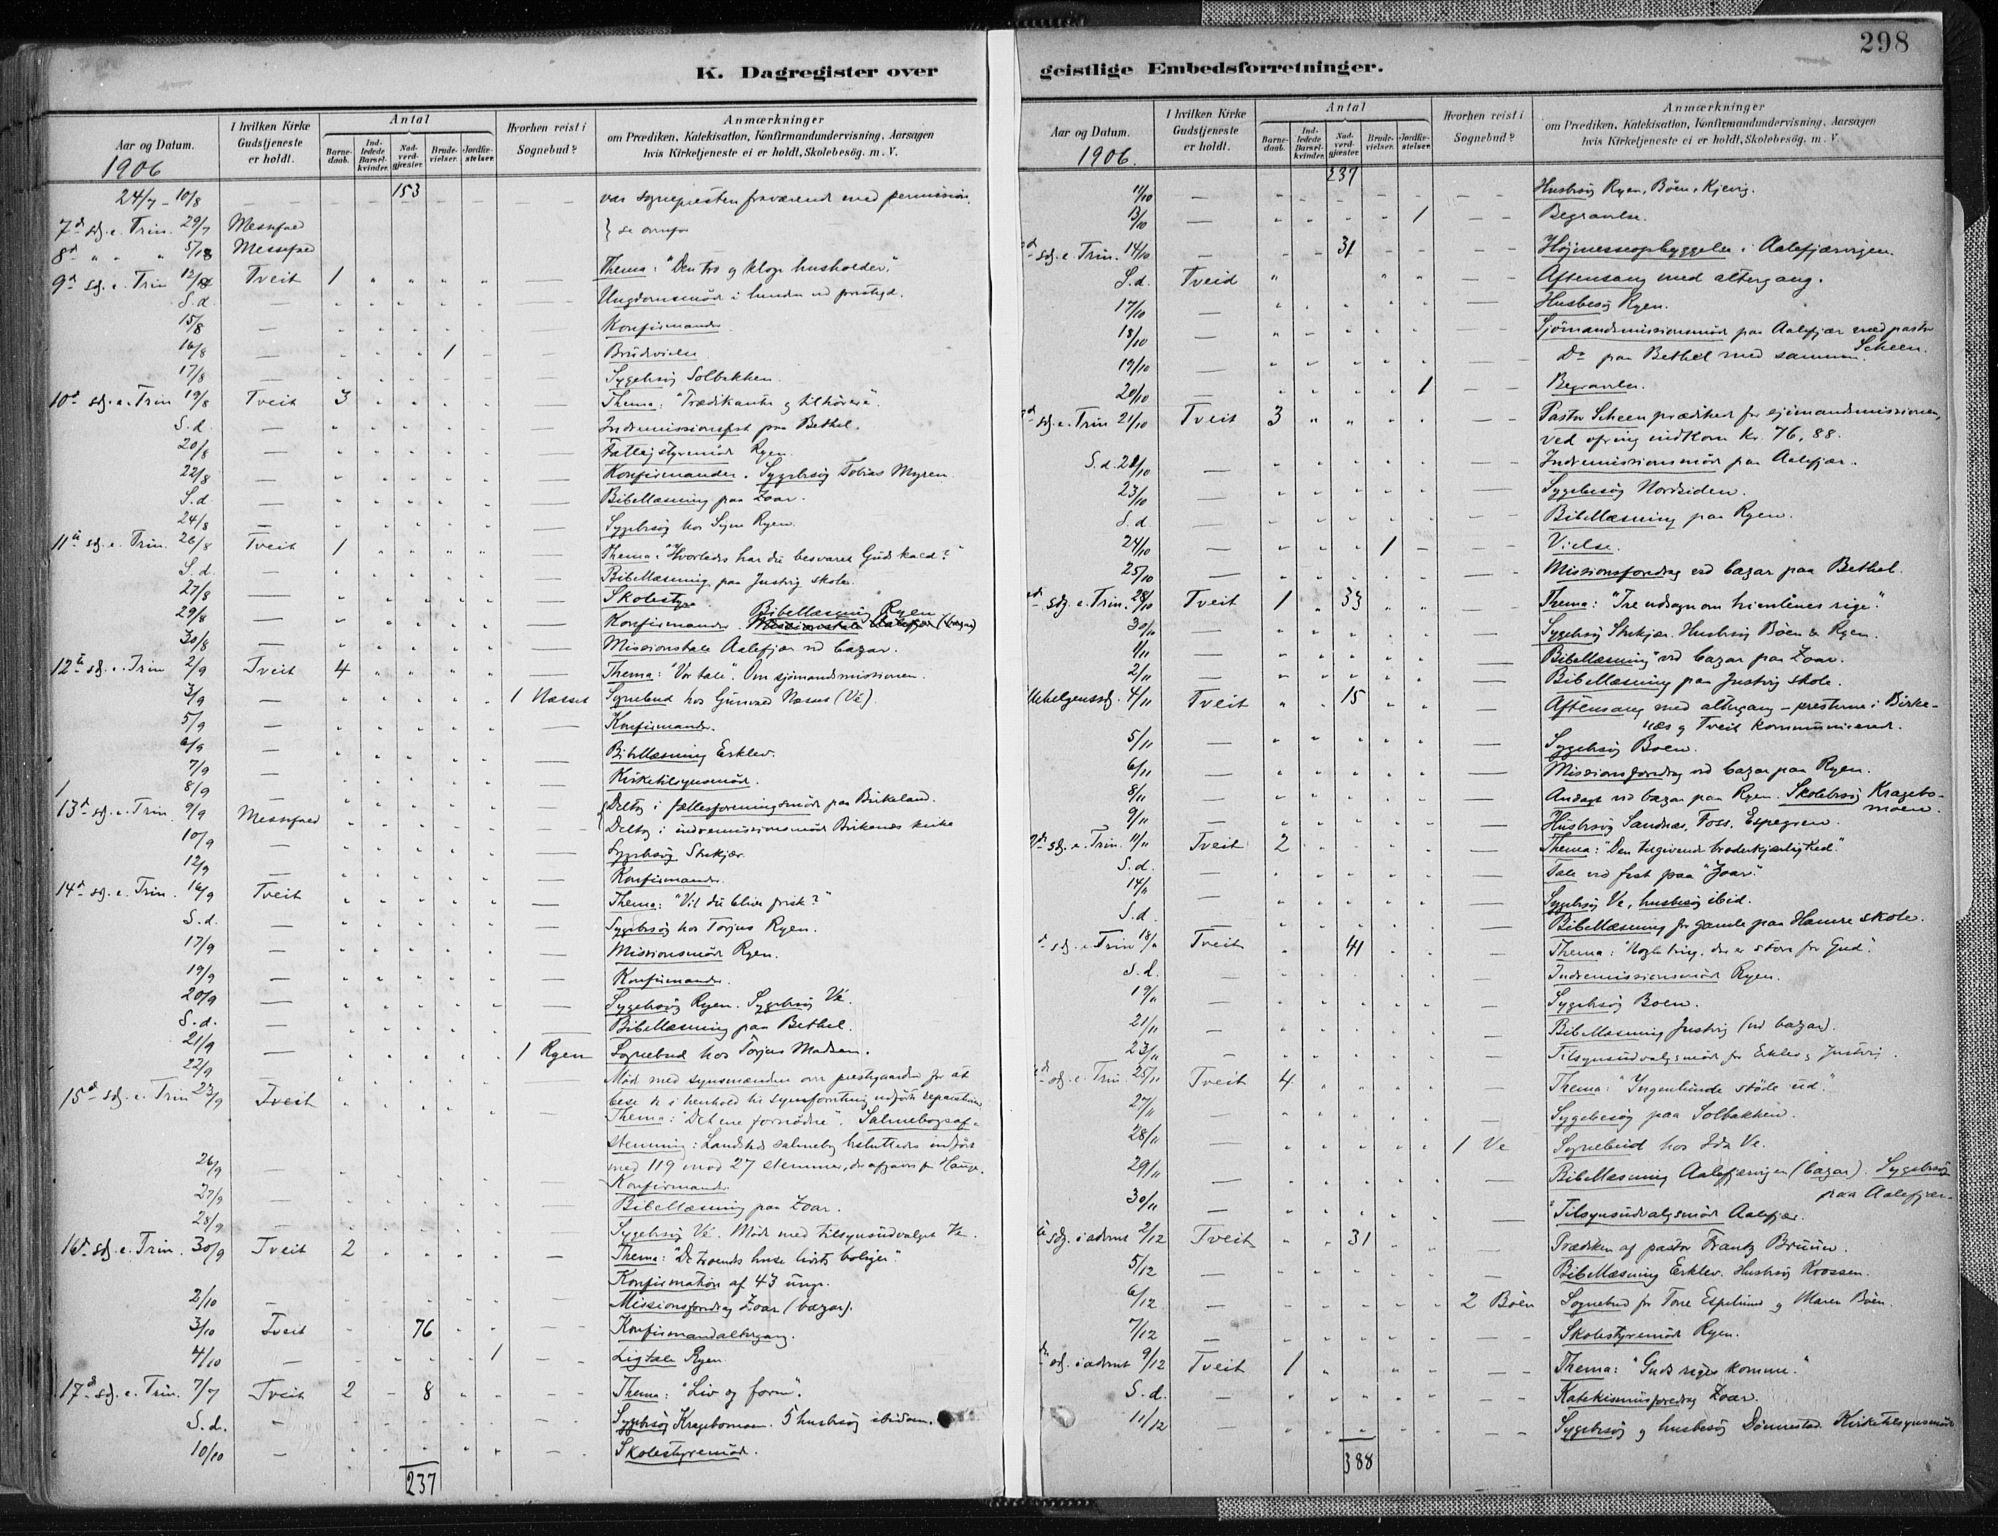 298
K. Dagregister over
Aar og Datum.
1906
I hvilken Kirke Gudstjeneste er holdt.
Antal
Barnedaab.
Indledede Barselkvinder.
Nadverdgjæster.
Brudevielser.
Jordfæstelser.
Hvorhen reist i Sognebud?
Anmærkninger
om Prædiken, Katekisation, Konfirmandundervisning, Aarsagen
hvis Kirketjeneste ei er holdt, Skolebesøg. m. V.
153
24/7 - 10/8 var sognepresten fraværende med permission
7d sdg. e. Trin. 29/7 Messefald } se ovenfor
8d " " " 5/8 Messefald
9d sdg. e. Trin 12/8 Tveit 1 Thema: "Den tro og kloge husholder."
S. d. Ungdomsmøde i lunden ved prestegd.
15/8 — Konfirmander.
16/8 — 1 Brudevielse
17/8 — Sygebesøg Solbakken.
10d sdg. e. Trin 19/8 Tveit 3 Thema: "Prædikanter og tilhørere".
S. d. — Indremissionsfest paa Bethel.
20/8 — Fattigstyremøde Ryen.
22/8 — Konfirmander. Sygebesøg Tobias Myren.
S. d. — Bibellæsning paa Zoar.
24/8 — Sygebesøg hos Signe Ryen.
11te sdg. e. Trin. 26/8 Tveit 1 Thema: "Hvorledes har du besvaret Guds kald?"
S. d. — Bibellæsning paa Justvig skole.
27/8 — Skolestyre
29/8 — Konfirmander. Bibellæsning Ryen
30/8 — Missionstale Aalefjær ved bazar.
12te sdg. e. Trin 2/9 Tveit 4 Thema: "Vor tale". Om sjømandsmissionen.
3/9 — 1 Næsset Sognebud hos Gunvald Næsset (Ve).
5/9 — Konfirmander.
6/9 — Bibellæsning Erklev.
7/9 — Kirketilsynsmøde.
8/9 — Deltog i fællesforeningsmøde paa Birkeland.
13d sdg. e. Trin. 9/9 Messefald Deltog i indremissionsmøde Birkenes kirke
10/9 — Sygebesøg Strekjær.
12/9 — Konfirmander.
14d sdg. e. Trin. 16/9 Tveit Thema: "Vil du blive frisk?"
S. d. — Sygebesøg hos Torjus Ryen.
17/9 — Missionsmøde Ryen.
19/9 — Konfirmander.
20/9 — Sygebesøg Ryen. Sygebesøg Ve.
S. d. — Bibellæsning paa Bethel.
21/9 — 1 Ryen Sognebud hos Torjus Madsen.
22/9 Møde med synsmændene over prestegaarden for at
bese de i henhold til synsforretning udførte reparationer
15d sdg. e. Trin 23/9 Tveit Thema: "Det ene fornødne". Salmebogsaf-
stemning: Landstads salmebog besluttedes indført
med 119 mod 27 stemmer, der afgaves for Hauge.
26/9 — Konfirmander
27/9 — Bibellæsning paa Zoar.
28/9 — Sygebesøg Ve. Møde med tilsynsudvalget Ve.
16d sdg. e. Trin. 30/9 Tveit 2 Thema: "De troendes huse livets boliger."
Konfirmation af 43 unge.
2/10 — Missionsforedrag Zoar (bazar).
3/10 Tveit 76 Konfirmandaltergang.
4/10 — 1 Ligtale Ryen.
17d sdg. e. Trin. 7/7 Tveit 2 8 Thema: "Liv og form".
S. d. — Sygebesøg Kragebomoen. 5 husbesøg ibidem.
10/10 — Skolestyremøde.
237
geistlige Embedsforretninger.
Aar og Datum.
1906.
I hvilken Kirke Gudstjeneste er holdt.
Antal
Barnedaab.
Indledede Barselkvinder.
Nadverdgjæster.
Brudevielser.
Jordfæstelser.
Hvorhen reist i Sognebud?
Anmærkninger
om Prædiken, Katekisation, Konfirmandundervisning, Aarsagen
hvis Kirketjeneste ei er holdt, Skolebesøg. m. V.
237
11/10 — Husbesøg Ryen, Bøen, Kjevig.
13/10 — 1 Begravelse.
sdg. e. Trin. 14/10 — 31 Højmesseopbyggelse i Aalefjærvigen.
S. d. Tveid Aftensang med altergang.
17/10 — Husbesøg Ryen.
18/10 — Sjømandsmissionsmøde paa Aalefjær med pastor Scheen.
19/10 — Do paa Bethel med samme.
20/10 — 1 Begravelse.
sdg. e. Trin 21/10 Tveit 3 Pastor Scheen prædiket for sjømandsmissionen,
ved ofring indkom kr. 76,88.
S. d. 21/10 — Indremissionsmøde paa Aalefjær.
23/10 — Sygebesøg Nordsiden.
S. d — Bibellæsning paa Ryen.
24/10 — 1 Vielse.
25/10 — Missionsforedrag ved bazar paa Bethel.
sdg. e. Trin. 28/10 Tveit 1 33 Thema: "Tre udsagn om himlenes rige".
30/10 — Sygebesøg Strekjær. Husbesøg Bøen & Ryen.
1/11 — Bibellæsning ved bazar paa Zoar.
2/11 — Bibellæsning paa Justvig skole.
Allehelgenssdg. 4/11 Tveit 15 Aftensang med altergang – presterne i Birke-
næs og Tveit kommunicerede.
5/11 — Sygebesøg Boen.
6/11 — Missionsforedrag ved bazar paa Ryen.
8/11 — Andagt ved bazar paa Ryen. Skolebesøg Kragebo-
moen.
9/11 — Husbesøg Sandnæs, Foss, Espegren.
sdg. e. Trin. 11/11 Tveit 2 Thema: "Den tilgivende broderkjærlighed."
S. d. — Tale ved fest paa "Zoar".
14/11 — Sygebesøg Ve, husbesøg ibid.
S. d. — Bibellæsning for gamle paa Hamre skole.
sdg. e. Trin 18/11 Tveit 41 Thema: "Nogle ting, der er store for Gud".
S. d. — Indremissionsmøde Ryen.
19/11 — Sygebesøg Boen.
21/11 — Bibellæsning Justvig (ved bazar).
23/11 — Tilsynsudvalgsmøde for Erklev og Justvig.
sdg. e. Trin 25/11 Tveit 4 Thema: "Ingenlunde støde ud."
27/11 — Sygebesøg paa Solbakken.
28/11 — 1 Ve Sognebud hos Ida Ve.
29/11 — Bibellæsning Aalefjærvigen (bazar). Sygebesøg
paa Aalefjær.
30/11 — Tilsynsudvalgsmøde Aalefjær.
sdg. i advent 2/12 Tveit 31 Prædiken af pastor Frantz Bruun.
5/12 — Bibellæsning Erklev. Husbesøg Krossen.
6/12 — 2 Bøen Sognebud for Tone Espelund og Maren Bøen.
7/12 — Skolestyremøde Ryen.
sdg. i advent 9/12 Tveit 1 Thema: "Guds riges komme."
S. d. — Katekismusforedrag Zoar.
11/12 — Sygebesøg og husbesøg Dønnestad. Kirketilsynsmøde
388